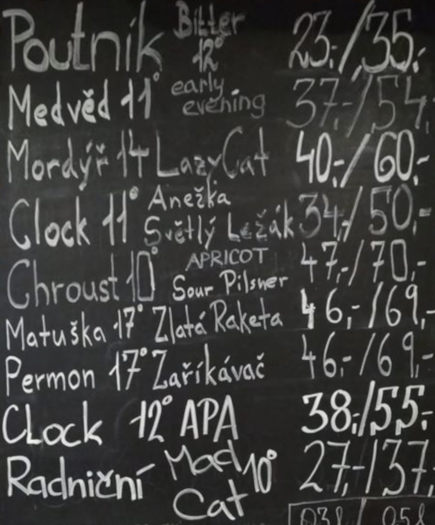 Poutník Bitter 12° 23,-/35,-
Medvěd 11° early evening 37,-/54,-
Mordýř 14 Lazy Cat 40,-/60,-
Clock 11° Anežka Světlý Ležák 34,-/50,-
Chroust 10° APRICOT Sour Pilsner 47,-/70,-
Matuška 17° Zlatá Raketa 46,-/69,-
Permon 17° Zaříkávač 46,-/69,-
CLock 12° APA 38,-/55,-
Radniční Mad Cat 10° 27,-/37,-